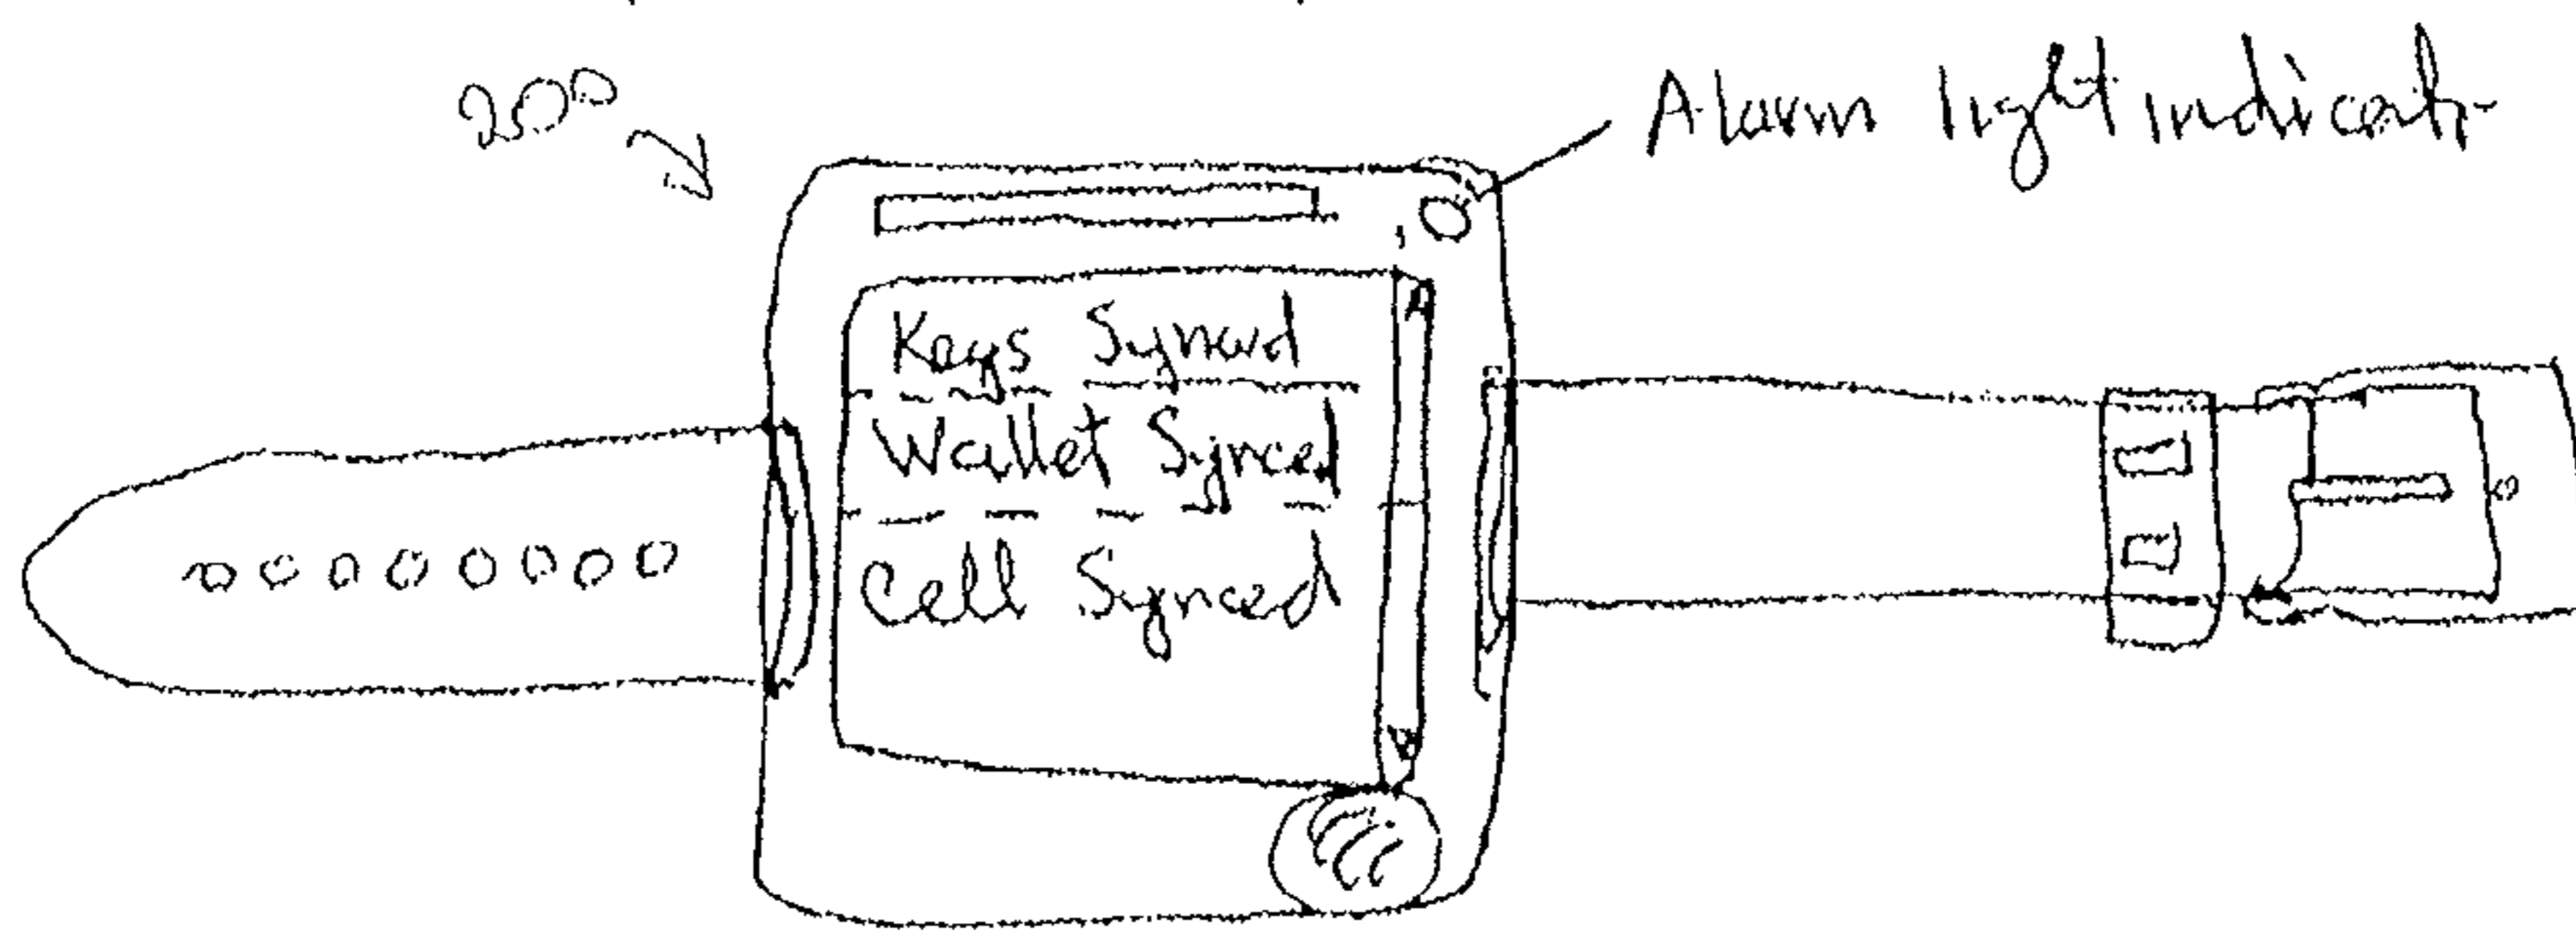 200
Alarm light indicator
Keys Synced
Wallet Synced
Cell Synced